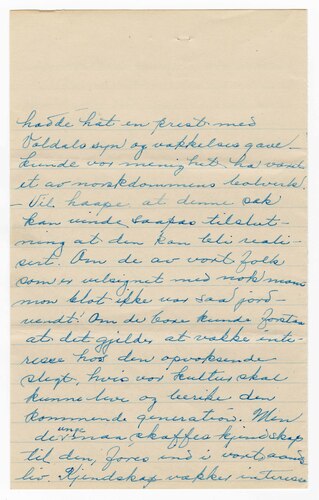 hadde hat en prest med
Voldals syn og vækkelsesgave –
kunde vor menighet ha været
et av norskdommens bolverk.
– Vil haape at denne sak
kan vinde saapas tilslut-
ning at den kan bli reali-
sert. Om de av vort folk
som er velsignet med nok mam
mon blot ikke var saa jord-
vendt! Om de bare kunde forstaa
at det gjelder at vække inte-
resse hos den opvoksende
slegt, hvis vor kultur skal
kunne leve og berike den
kommende generation. Men
de unge maa skaffes kjendskap
til den, føres ind i vort aands
liv. Kjendskap vækker interesse